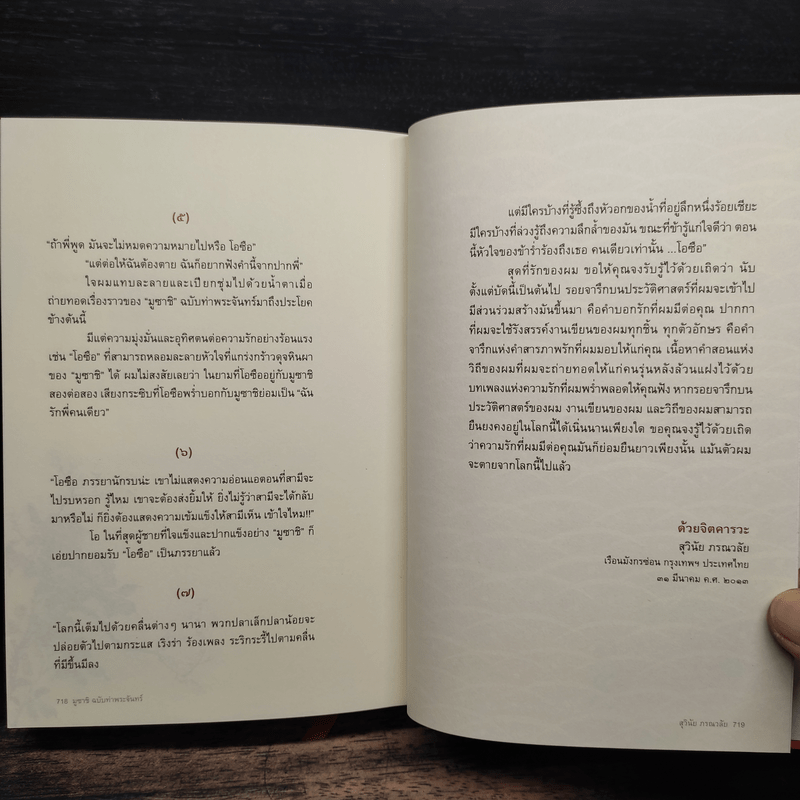 (๕)
"ถ้าพี่พูด มันจะไม่หมดความหมายไปหรือ โอซือ"
"แต่ต่อให้ฉันต้องตาย ฉันก็อยากฟังคำนี้จากปากพี่"
ใจผมแทบละลายและเปียกชุ่มไปด้วยน้ำตาเมื่อ
ถ่ายทอดเรื่องราวของ "มูซาชิ" ฉบับท่าพระจันทร์มาถึงประโยค
ข้างต้นนี้
มีแต่ความมุ่งมั่นและอุทิศตนต่อความรักอย่างร้อนแรง
เช่น "โอซือ" ที่สามารถหลอมละลายหัวใจที่แกร่งกร้าวดุจหินผา
ของ "มูซาชิ" ได้ ผมไม่สงสัยเลยว่า ในยามที่โอซืออยู่กับมูซาชิ
สองต่อสอง เสียงกระซิบที่โอซือพร่ำบอกกับมูซาชิย่อมเป็น "ฉัน
รักพี่คนเดียว"
(๖)
"โอซือ ภรรยานักรบน่ะ เขาไม่แสดงความอ่อนแอตอนที่สามีจะ
ไปรบหรอก รู้ไหม เขาจะต้องส่งยิ้มให้ ยิ่งไม่รู้ว่าสามีจะได้กลับ
มาหรือไม่ ก็ยิ่งต้องแสดงความเข้มแข็งให้สามีเห็น เข้าใจไหม!!"
โอ ในที่สุดผู้ชายที่ใจแข็งและปากแข็งอย่าง "มูซาชิ" ก็
เอ่ยปากยอมรับ "โอซือ" เป็นภรรยาแล้ว
(๗)
"โลกนี้เต็มไปด้วยคลื่นต่างๆ นานา พวกปลาเล็กปลาน้อยจะ
ปล่อยตัวไปตามกระแส เริงร่า ร้องเพลง ระริกระรี้ไปตามคลื่น
ที่มีขึ้นมีลง
718 มูซาชิ ฉบับท่าพระจันทร์
แต่มีใครบ้างที่รู้ซึ้งถึงหัวอกของน้ำที่อยู่ลึกหนึ่งร้อยเชียะ
มีใครบ้างที่ล่วงรู้ถึงความลึกล้ำของมัน ขณะที่ข้ารู้แก่ใจดีว่า ตอน
นี้หัวใจของข้าร่ำร้องถึงเธอ คนเดียวเท่านั้น ...โอซือ"
สุดที่รักของผม ขอให้คุณจงรับรู้ไว้ด้วยเถิดว่า นับ
ตั้งแต่บัดนี้เป็นต้นไป รอยจารึกบนประวัติศาสตร์ที่ผมจะเข้าไป
มีส่วนร่วมสร้างมันขึ้นมา คือคำบอกรักที่ผมมีต่อคุณ ปากกา
ที่ผมจะใช้รังสรรค์งานเขียนของผมทุกชิ้น ทุกตัวอักษร คือคำ
จารึกแห่งคำสารภาพรักที่ผมมอบให้แก่คุณ เนื้อหาคำสอนแห่ง
วิถีของผมที่ผมจะถ่ายทอดให้แก่คนรุ่นหลังล้วนแฝงไว้ด้วย
บทเพลงแห่งความรักที่ผมพร่ำพลอดให้คุณฟัง หากรอยจารึกบน
ประวัติศาสตร์ของผม งานเขียนของผม และวิถีของผมสามารถ
ยืนยงคงอยู่ในโลกนี้ได้เนิ่นนานเพียงใด ขอคุณจงรู้ไว้ด้วยเถิด
ว่าความรักที่ผมมีต่อคุณมันก็ย่อมยืนยาวเพียงนั้น แม้นตัวผม
จะตายจากโลกนี้ไปแล้ว
ด้วยจิตคารวะ
สุวินัย ภรณวลัย
เรือนมังกรซ่อน กรุงเทพฯ ประเทศไทย
๓๑ มีนาคม ค.ศ. ๒๐๑๓
สุวินัย ภรณวลัย 719